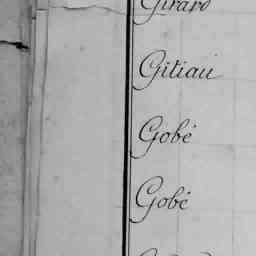 Girard
Gitiau
Gobé
Gobé